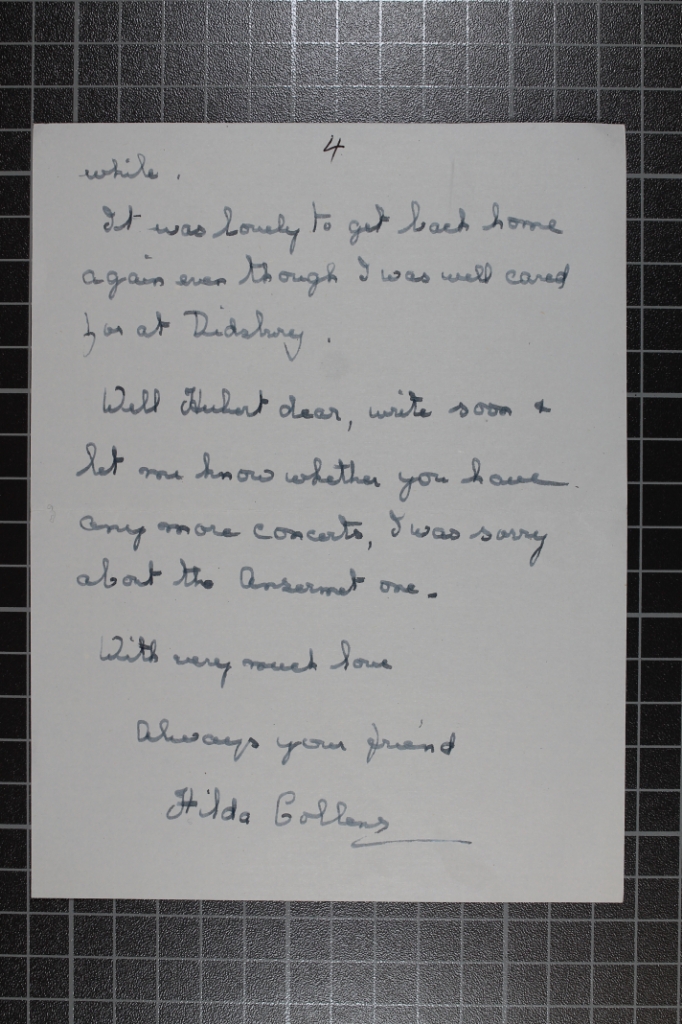 4
while.
It was lovely to get back home
again even though I was well cared
for at Didsbury.
Well Hubert dear, write soon &
let me know whether you have
any more concerts, I was sorry
about the Ansermet one.
With very much love
Always your friend
Hilda Collens